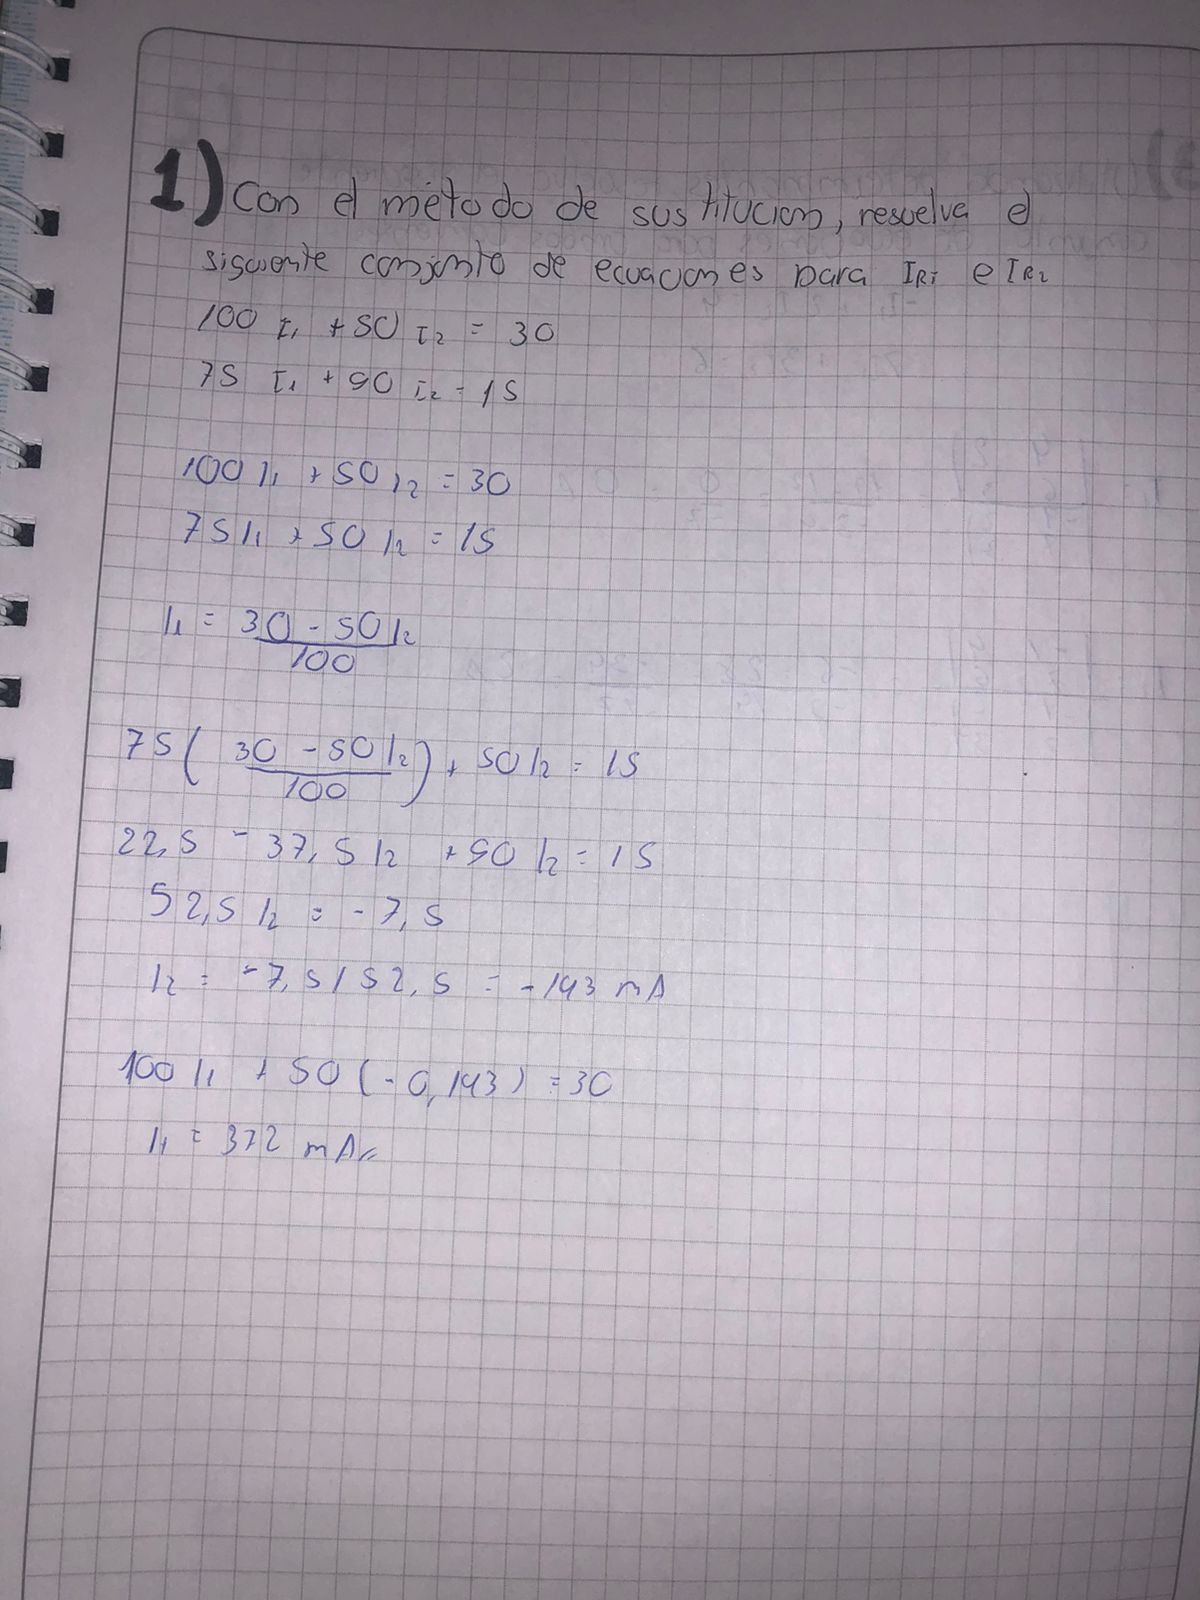 1) Con el método de sustitución, resuelva el
siguiente conjunto de ecuaciones para IR1 e IR2
100 I1 + 50 I2 = 30
75 I1 + 90 I2 = 15
100 I1 + 50 I2 = 30
75 I1 + 50 I2 = 15
I1 = 30 - 50 I2
100
75 ( 30 - 50 I2 ) + 50 I2 = 15
100
22,5 - 37,5 I2 + 90 I2 = 15
52,5 I2 = -7,5
I2 = -7,5 / 52,5 = -143 mA
100 I1 + 50 (-0,143) = 30
I1 = 372 mA